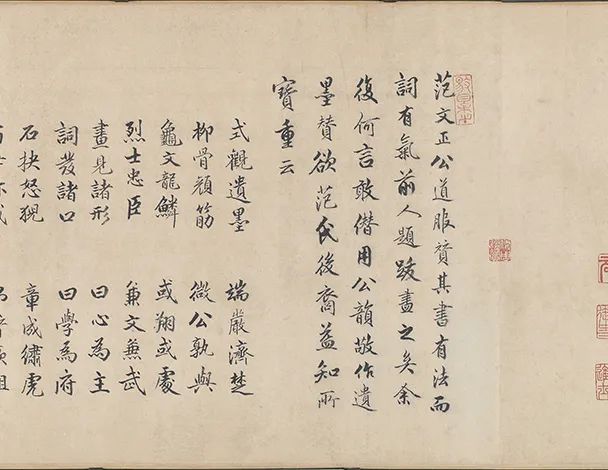 范文正公道服贊其書有法而
詞有氣前人題跋盡之矣余
復何言敢僭用公韻敬作遺
墨贊欲范氏後裔益知所
寶重云
式觀遺墨 端嚴濟楚
柳骨顏筋 微公孰與
龜文龍鱗 或翔或處
烈士忠臣 兼文兼武
畫見諸形 曰心為主
詞發諸口 曰學為府
石抉怒猊 章成繡虎